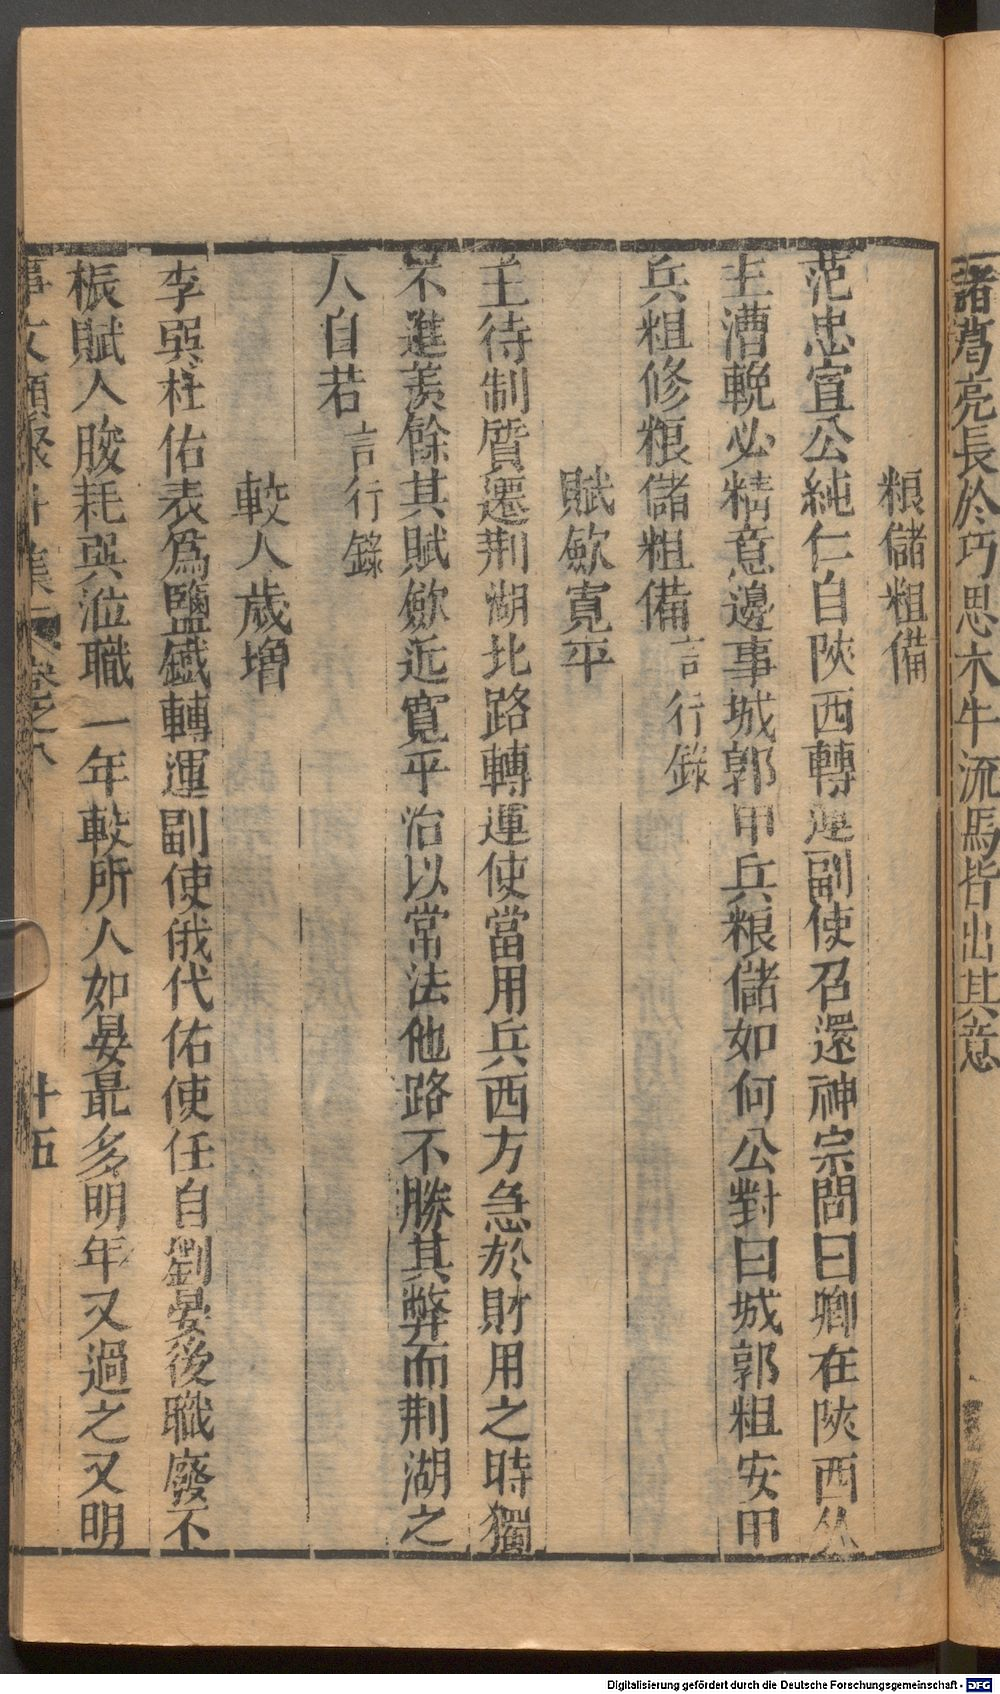 諸葛亮長於巧思木牛流馬皆出其意
粮儲粗備
范忠宣公純仁自陜西轉運副使召還神宗問曰卿在陜西久
主漕輓必精意邊事城郭甲兵粮儲如何公對曰城郭粗安甲
兵粗修粮儲粗備言行錄
賦斂寛平
王待制質遷荆湖北路轉運使當用兵西方急於財用之時獨
不進羡餘其賦斂近寛平治以常法他路不勝其弊而荆湖之
人自若言行錄
較人歳増
李巽杜佑表爲鹽鐵轉運副使俄代佑使任自劉晏後職廢不
振賦入朘耗巽涖職一年較所人如晏最多明年又過之又明
事文類聚外集 卷之八 十五
Digitalisierung gefördert durch die Deutsche Forschungsgemeinschaft - DFG